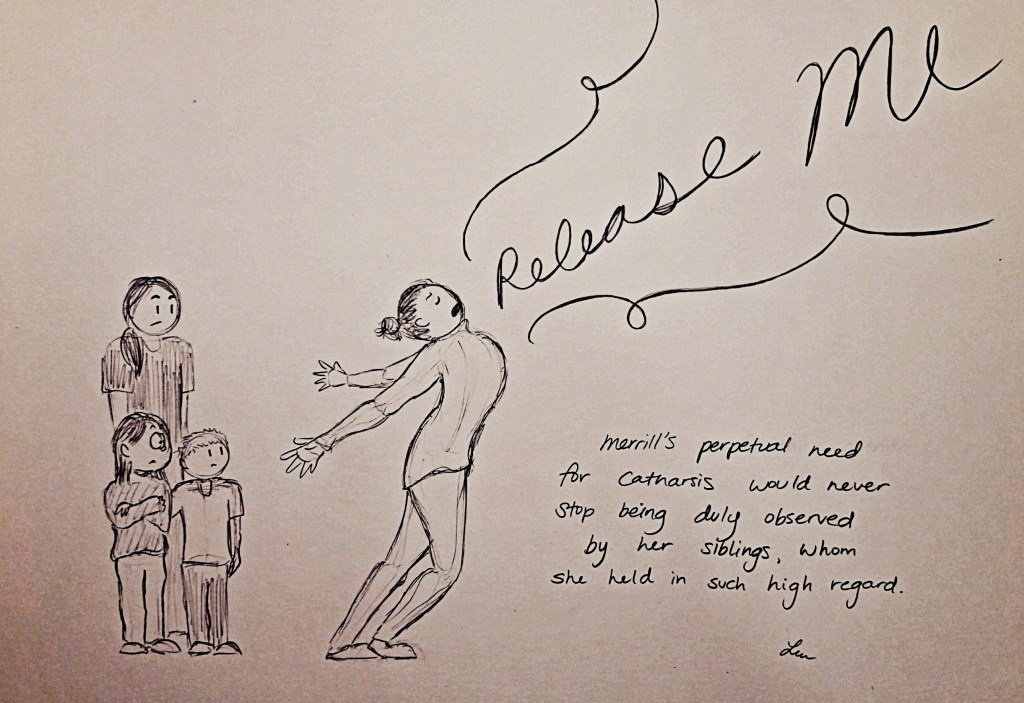 Release Me
Merrill's perpetual need
for Catharsis would never
stop being duly observed
by her siblings, whom
she held in such high regard.